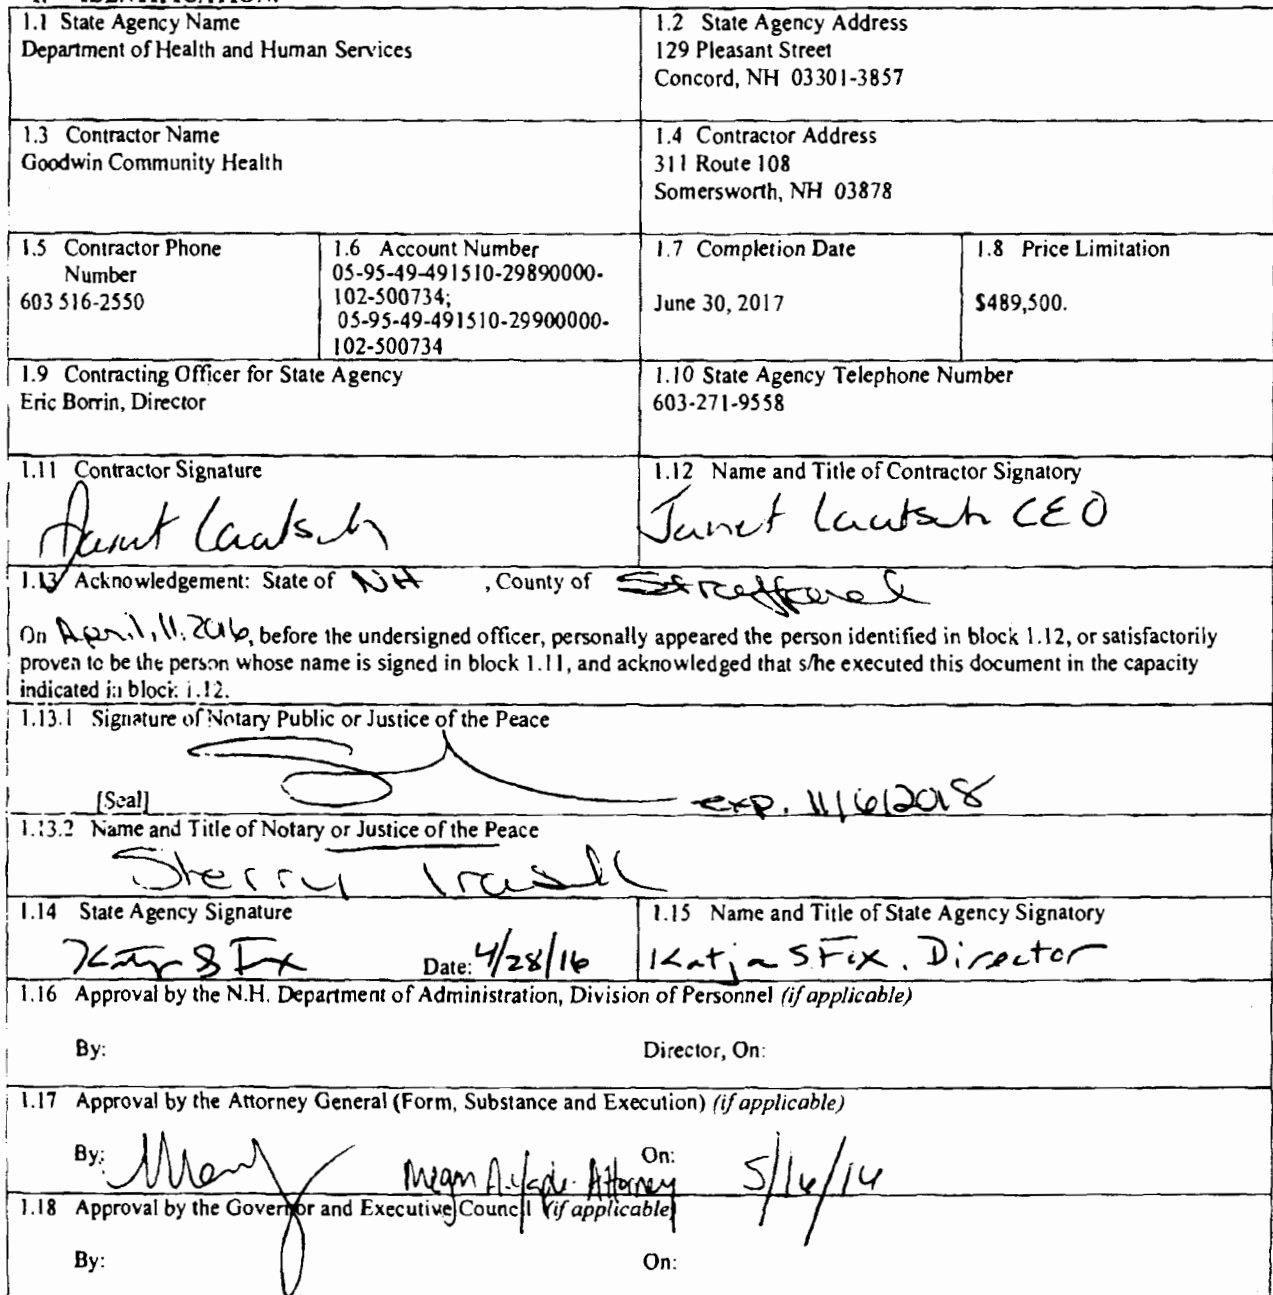 1. IDENTIFICATION.
1.1 State Agency Name
Department of Health and Human Services
1.2 State Agency Address
129 Pleasant Street
Concord, NH 03301-3857
1.3 Contractor Name
Goodwin Community Health
1.4 Contractor Address
311 Route 108
Somersworth, NH 03878
1.5 Contractor Phone
Number
603 516-2550
1.6 Account Number
05-95-49-491510-29890000-
102-500734;
05-95-49-491510-29900000-
102-500734
1.7 Completion Date
June 30, 2017
1.8 Price Limitation
$489,500.
1.9 Contracting Officer for State Agency
Eric Borrin, Director
1.10 State Agency Telephone Number
603-271-9558
1.11 Contractor Signature
Janet Laatsch
1.12 Name and Title of Contractor Signatory
Janet Laatsch CEO
1.13 Acknowledgement: State of NH , County of Strafford
On April, 11, 2016, before the undersigned officer, personally appeared the person identified in block 1.12, or satisfactorily
proven to be the person whose name is signed in block 1.11, and acknowledged that s/he executed this document in the capacity
indicated in block 1.12.
1.13.1 Signature of Notary Public or Justice of the Peace
[Seal] exp. 11/6/2018
1.13.2 Name and Title of Notary or Justice of the Peace
Sherry
1.14 State Agency Signature
Date: 4/28/16
1.15 Name and Title of State Agency Signatory
Katja S Fox. Director
1.16 Approval by the N.H. Department of Administration, Division of Personnel (if applicable)
By:
Director, On:
1.17 Approval by the Attorney General (Form, Substance and Execution) (if applicable)
By: Megan Attorney On:
1.18 Approval by the Governor and Executive Council (if applicable)
By:
On: